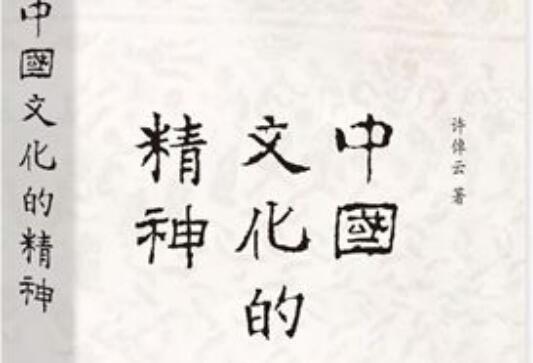 许倬云 著
中國
文化的
精神
中國文化的精神